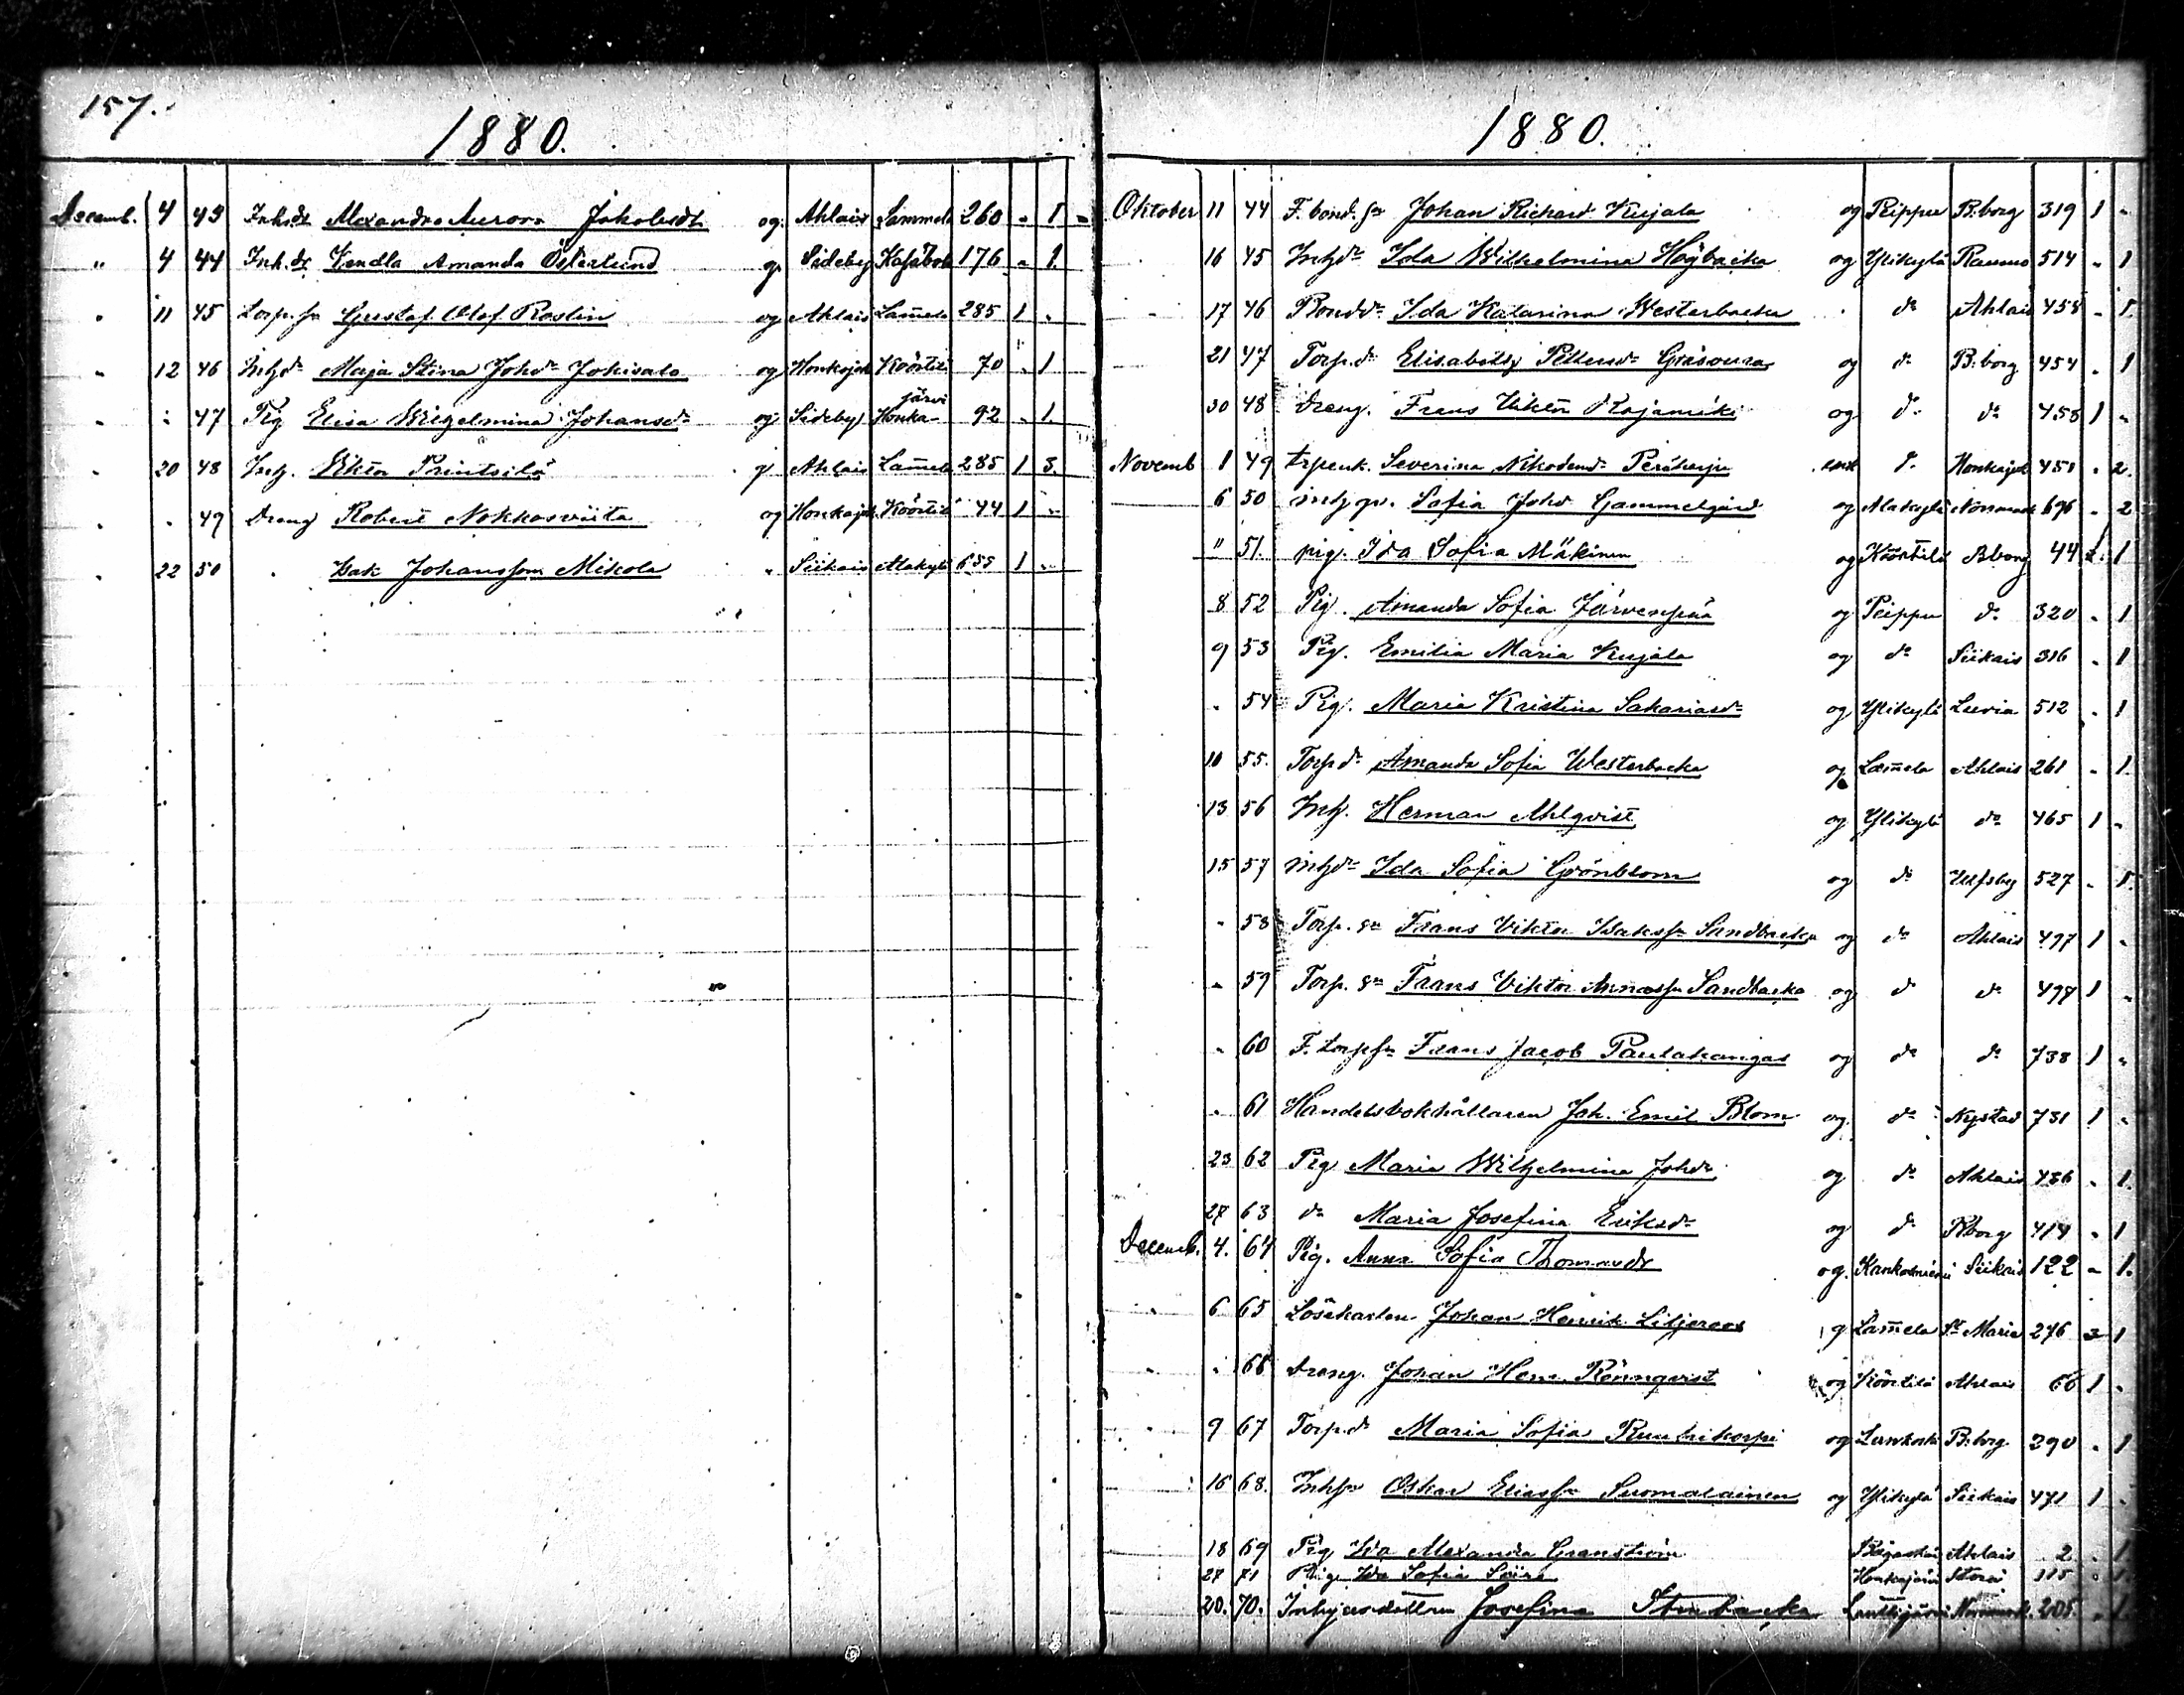 157.
1880.
Decemb. 4 43 Inh.dr Alexandra Aurora Jakobsdr og. Ahlais Lammela 260 - 1
" 4 44 Inh.dr Vendla Amanda Österlund g. Sideby Kasaböle 176 - 1.
" 11 45 Torp.sn Gustaf Olof Roslin og Ahlais Lam̅ela 285 1 -
" 12 46 Inhds Maja Stina Johdr Jokisalo og Honkajoki Köörtilä 70 - 1
" " 47 Pig Elisa Wilhelmina Johansdr og Sideby Honkajärvi 92 - 1.
" 20 48 Inh. Viktor Printsilä g Ahlais Lam̅ela 285 1 3.
" " 49 Dreng Robert Nokkosviita og Honkajok. Köörtilä 44 1 -
" 22 50 " Isak Johansson Mikola " Siikais Alakylä 655 1 -
1880.
Oktober 11 44 F. bond. sn Johan Richard Kujala og Peippu B.borg 319 1 -
16 45 Inhdr Ida Wilhelmina Högbacka og Ylikylä Raumo 514 - 1
17 46 Bonddr Ida Katarina Westerbacka do Ahlais 458 - 1.
21 47 Torp.dr Elisabeth Pettersdr og do B.borg 454 - 1
30 48 Dreng. Frans Viktor Rajamäki og do do 458 1 -
Novemb 1 49 Severina Nikodemdr Peräharju enk do Honkajok 451 - 2.
6 50 Sofia Johdr Gammelgård og Alakylä Norrmark 696 - 2
" 51. pig. Ida Sofia Mäkinen og Köörtilä B.borg 44 1
8 52 Pig. Amanda Sofia Järvenpää og Peippu do 320 - 1
9 53 Pig. Emilia Maria Kujala og do Siikais 316 - 1
" 54 Pig. Maria Kristina Sakariasdr og Ylikylä Luvia 512 - 1
10 55. Torpdr Amanda Sofia Westerbacka og Lam̅ela Ahlais 261 - 1.
13 56 Inh. Herman Ahlqvist og Ylikylä do 465 1 -
15 57 inhdr Ida Sofia Grönblom og do Ulfsby 527 - 1.
" 58 Torp. sn Frans Viktor Isaksson Sandbacka og do Ahlais 497 1 -
" 59 Torp. sn Frans Viktor Sandbacka og do do 497 1 -
" 60 F. torpsn Frans Jacob Paulakangas og do do 738 1 -
" 61 Handelsbokhållaren Joh. Emil Blom og do Nystad 731 1 -
23 62 Pig Maria Wilhelmina Johdr og do Ahlais 486 - 1.
27 63 do Maria Josefina Eriksdr og do B.borg 414 - 1
Decemb. 4. 64 Pig. Anna Sofia Thomasdr og. Kankaanniemi Siikais 122 - 1.
6 65 Lösekarlen Johan Henrik Liljeroos g Lam̅ela St Marie 276 1
" 66 Dreng. Johan Henr. Rönnqvist og Köörtilä Ahlais 66 1 -
9 67 Torp.dr Maria Sofia Ruuhikorpi og B.borg 290 - 1
16 68. Inhsn Oskar Eliassn Suomalainen og Ylikylä Siikais 471 1 -
18 69 Pig Ida Alexandra Granström Ahlais 2 - 1
27 71 Pig. Ida Sofia Honkajärvi Storå 115 1
20. 70. Inhysesdottren Josefina Stenbacka Lauttijärvi Norrmark. 205. - 1